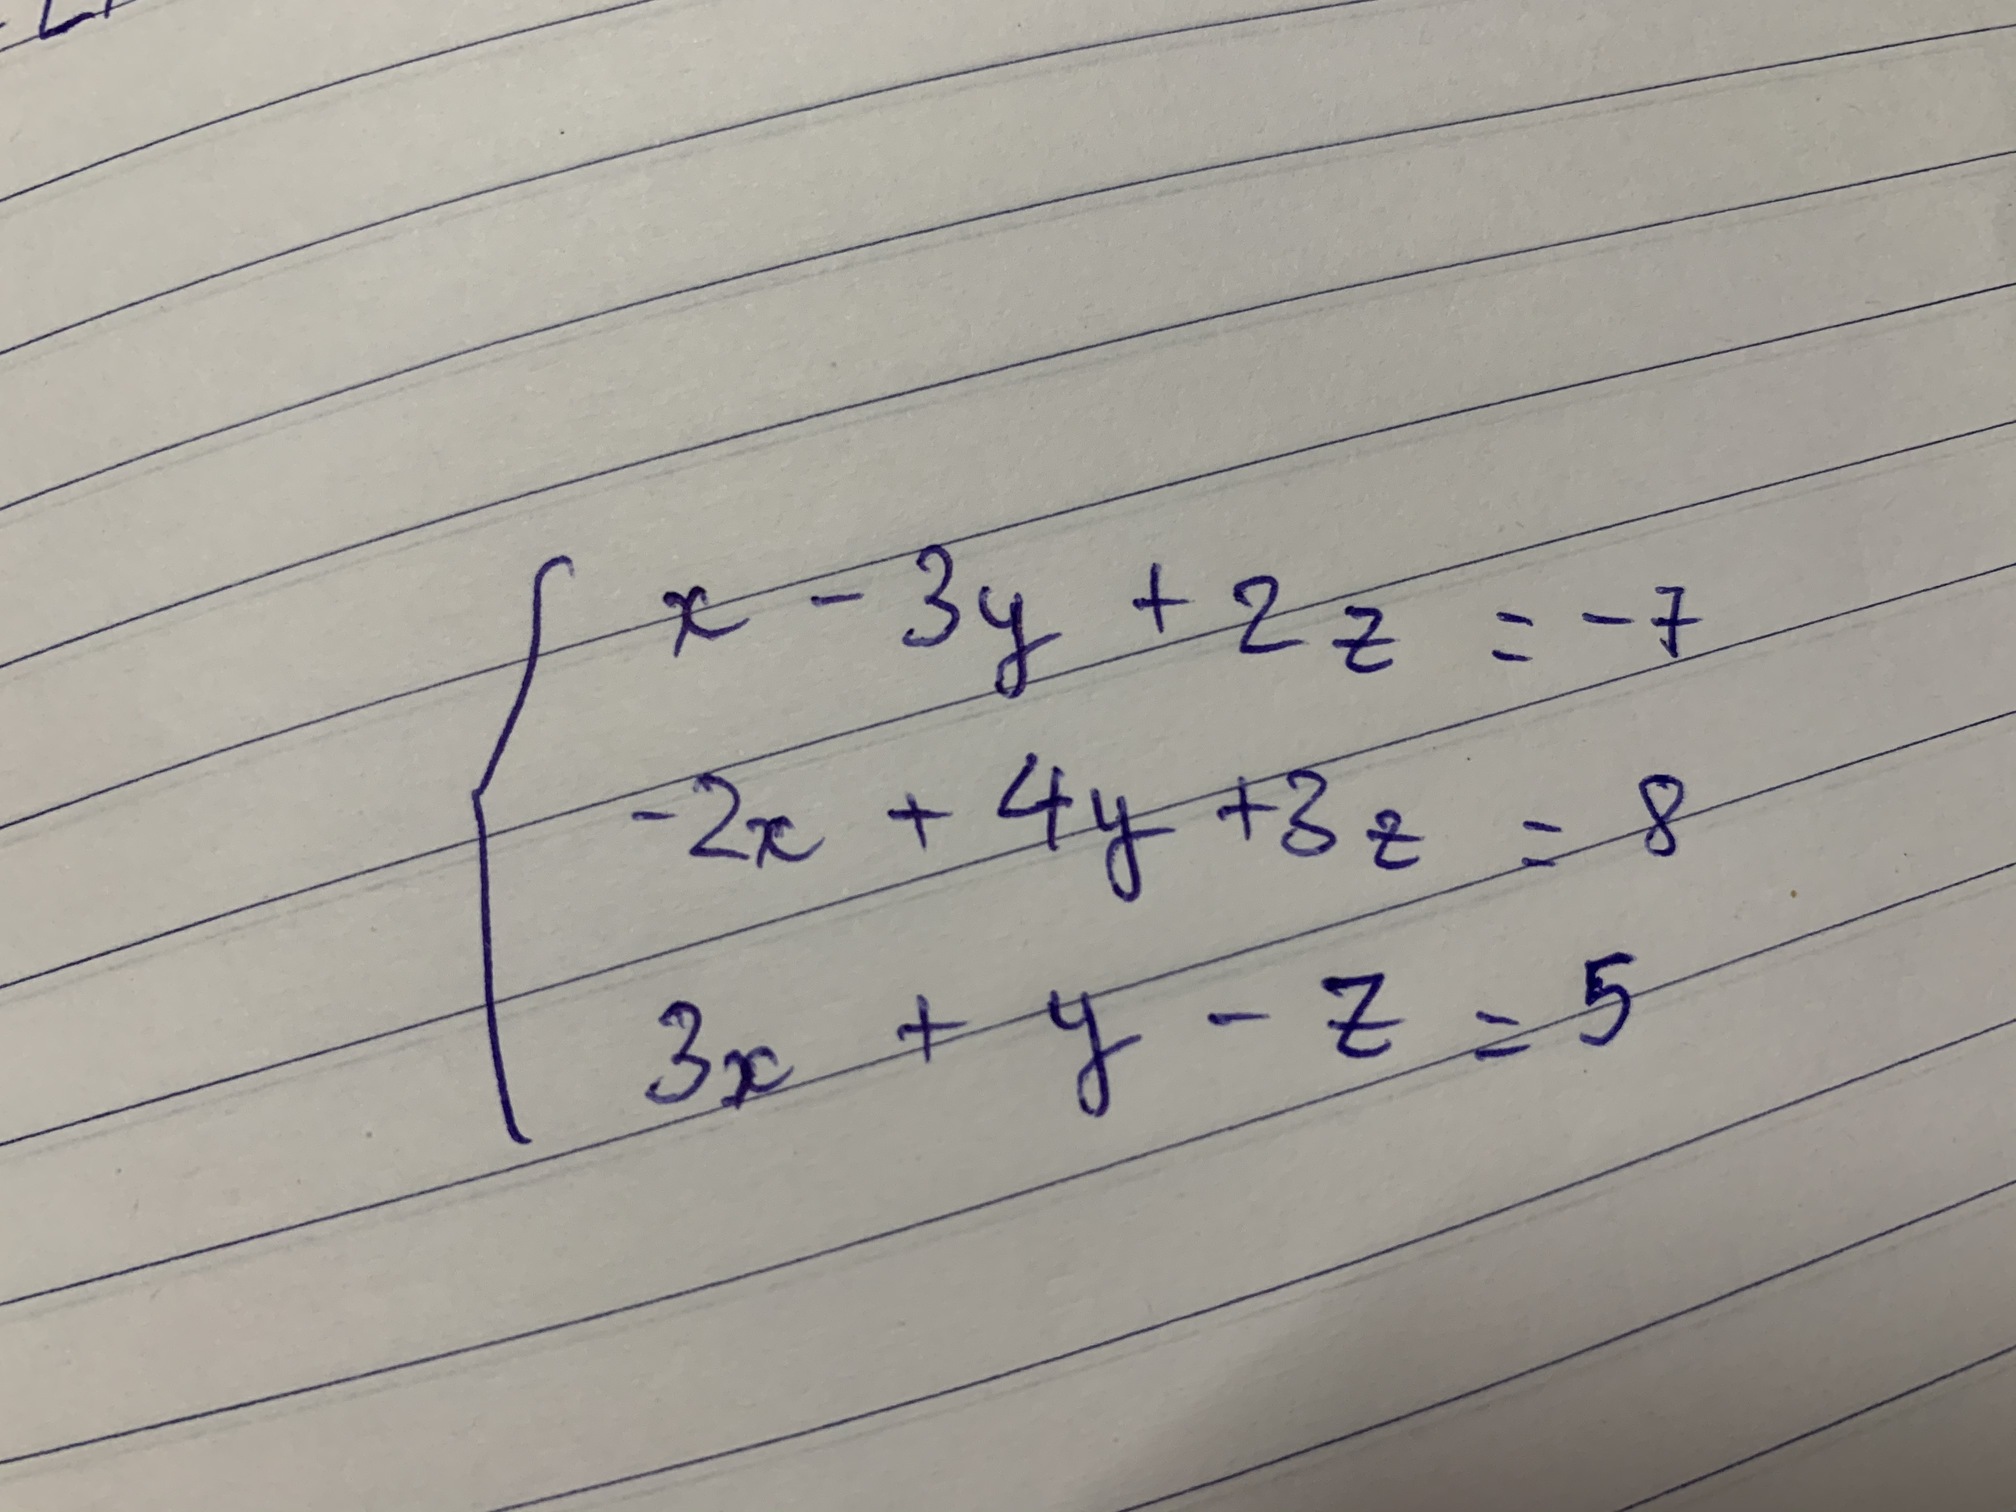 x - 3y + 2z = -7
-2x + 4y + 3z = 8
3x + y - z = 5